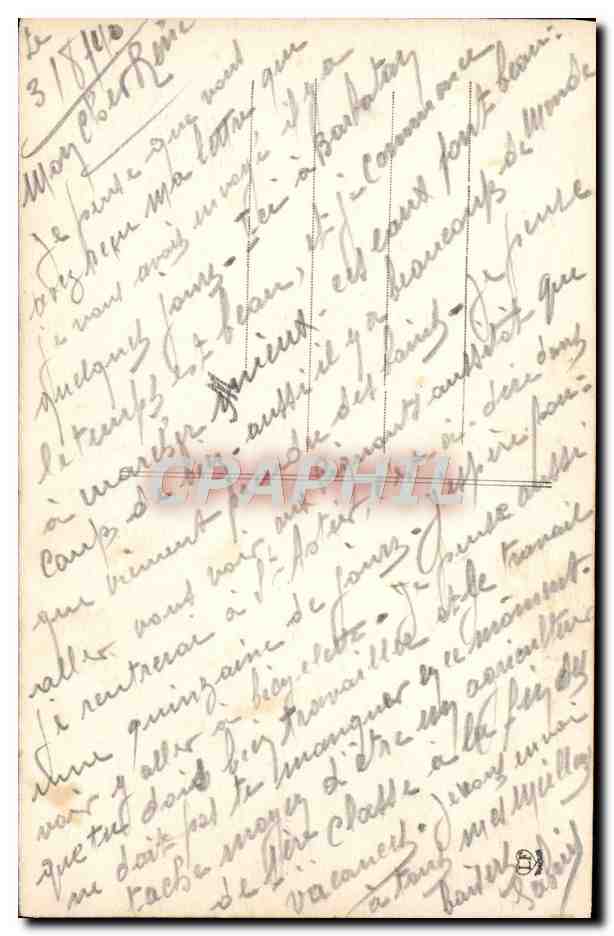 Le
3/8/40
Mon cher René
Je pense que vous
avez reçu ma lettre que
je vous avais envoyé, il y a
quelques jours. Ici à Barbotan
le temps est beau, et je commence
à marcher mieux. ces eaux font beau-
coup de bien. aussi il y a beaucoup de monde
que viennent prendre des bains. Je pense
aller vous voir aussitôt que
je rentrerai à St Astier, c'est à dire dans
une quinzaine de jours. J'espère pou-
voir y aller à bicyclette. Je pense aussi
que tu dois bien travailler et le travail
ne doit pas te manquer en ce moment.
tache moyen d'être un agriculteur
de 1ère classe à la fin des
vacances. Je vous envoi
à tous mes meilleurs
baisers
CPARAMA